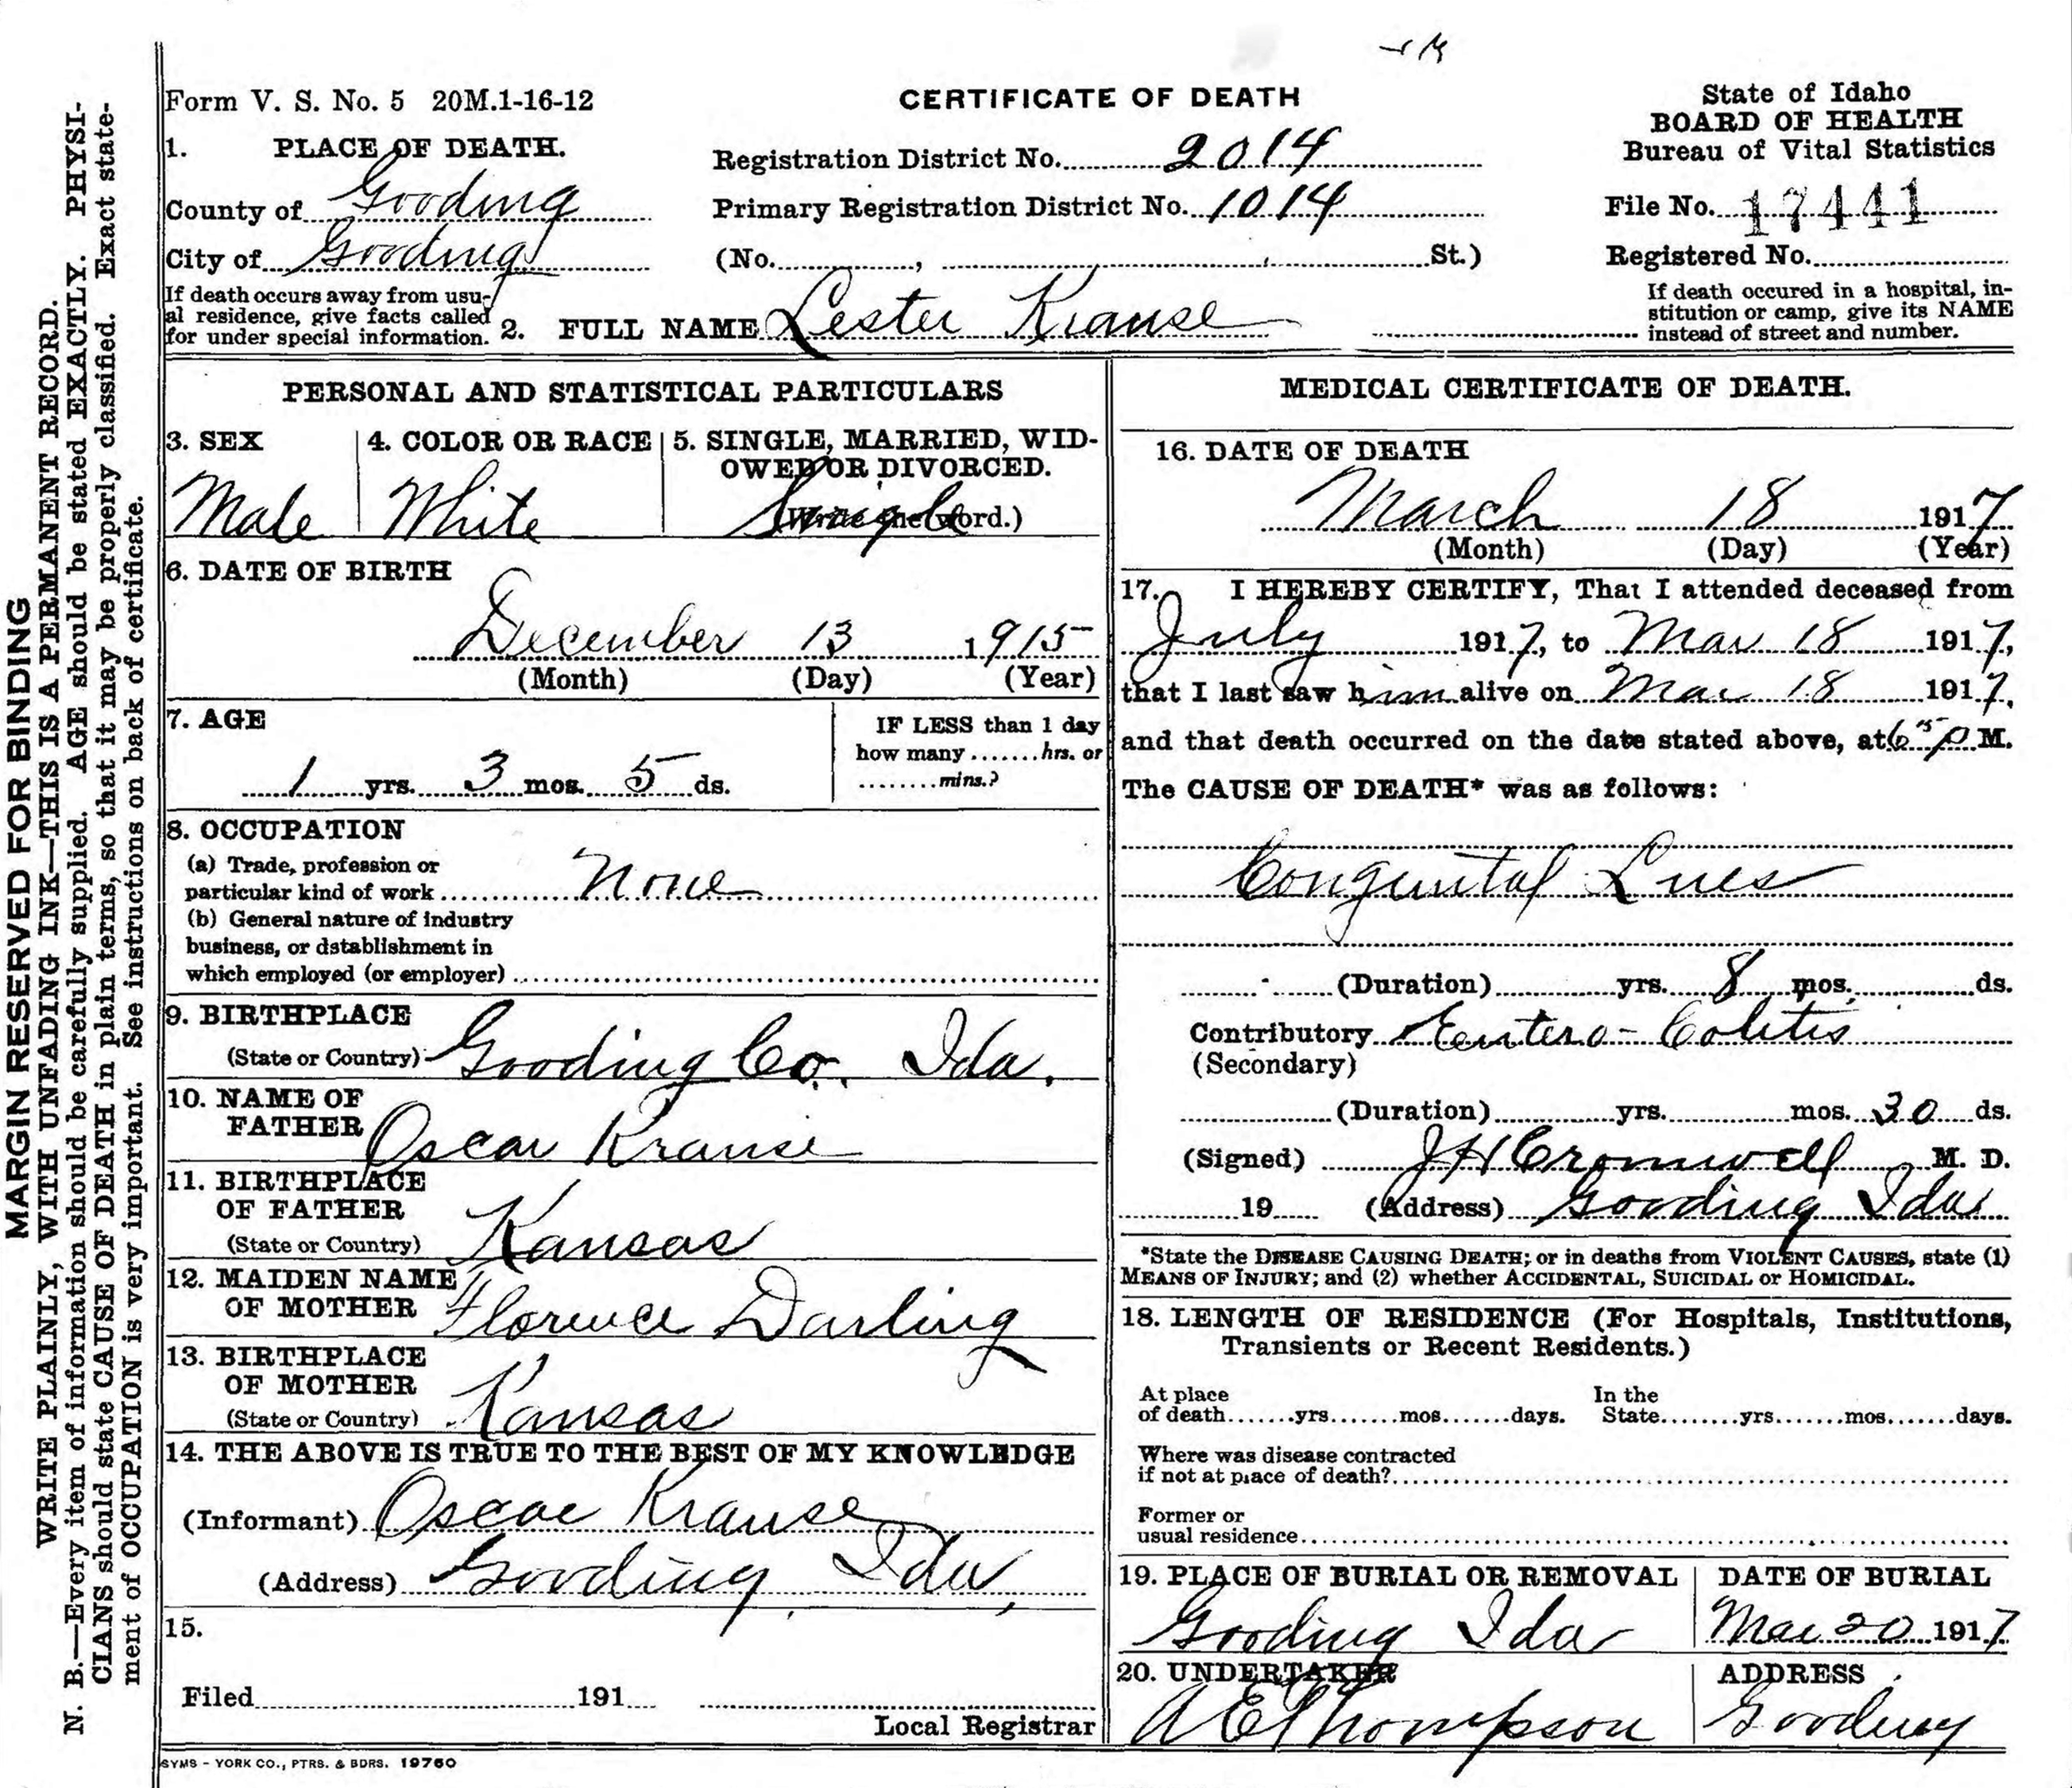 Form V. S. No. 5 20M.1-16-12
CERTIFICATE OF DEATH
State of Idaho
BOARD OF HEALTH
Bureau of Vital Statistics
1. PLACE OF DEATH.
County of Gooding
City of Gooding
If death occurs away from usu-
al residence, give facts called
for under special information.
Registration District No. 2014
Primary Registration District No. 1014
(No. , St.)
File No. 17441
Registered No.
If death occured in a hospital, in-
stitution or camp, give its NAME
instead of street and number.
2. FULL NAME Lester Krause
PERSONAL AND STATISTICAL PARTICULARS
3. SEX
Male
4. COLOR OR RACE
White
5. SINGLE, MARRIED, WID-
OWED OR DIVORCED.
(Write the word.)
Single
6. DATE OF BIRTH
December 13 1915
(Month) (Day) (Year)
7. AGE
1 yrs. 3 mos. 5 ds.
IF LESS than 1 day
how many ....... hrs. or
........ mins.?
8. OCCUPATION
(a) Trade, profession or
particular kind of work None
(b) General nature of industry
business, or dstablishment in
which employed (or employer)
9. BIRTHPLACE
(State or Country) Gooding Co. Ida.
10. NAME OF
FATHER Oscar Krause
11. BIRTHPLACE
OF FATHER
(State or Country) Kansas
12. MAIDEN NAME
OF MOTHER Florence Darling
13. BIRTHPLACE
OF MOTHER
(State or Country) Kansas
14. THE ABOVE IS TRUE TO THE BEST OF MY KNOWLEDGE
(Informant) Oscar Krause
(Address) Gooding, Ida,
15.
Filed 191
Local Registrar
MEDICAL CERTIFICATE OF DEATH.
16. DATE OF DEATH
March 18 1917
(Month) (Day) (Year)
17. I HEREBY CERTIFY, That I attended deceased from
July 1917, to Mar 18 1917,
that I last saw him alive on Mar 18 1917,
and that death occurred on the date stated above, at 6 15 P M.
The CAUSE OF DEATH* was as follows:
Congenital Lues
(Duration) yrs. 8 mos. ds.
Contributory Entero-Colitis
(Secondary)
(Duration) yrs. mos. 30 ds.
(Signed) J H Cromwell M. D.
19 (Address) Gooding Ida
*State the DISEASE CAUSING DEATH; or in deaths from VIOLENT CAUSES, state (1)
MEANS OF INJURY; and (2) whether ACCIDENTAL, SUICIDAL or HOMICIDAL.
18. LENGTH OF RESIDENCE (For Hospitals, Institutions,
Transients or Recent Residents.)
At place
of death.......yrs.......mos.......days.
In the
State........yrs.......mos.......days.
Where was disease contracted
if not at place of death?
Former or
usual residence
19. PLACE OF BURIAL OR REMOVAL
Gooding Ida
DATE OF BURIAL
Mar 20 1917
20. UNDERTAKER
A E Thompson
ADDRESS
Gooding
SYMS - YORK CO., PTRS. & BDRS. 19760
MARGIN RESERVED FOR BINDING
WRITE PLAINLY, WITH UNFADING INK—THIS IS A PERMANENT RECORD.
N. B.—Every item of information should be carefully supplied. AGE should be stated EXACTLY. PHYSI-
CIANS should state CAUSE OF DEATH in plain terms, so that it may be properly classified. Exact state-
ment of OCCUPATION is very important. See instructions on back of certificate.